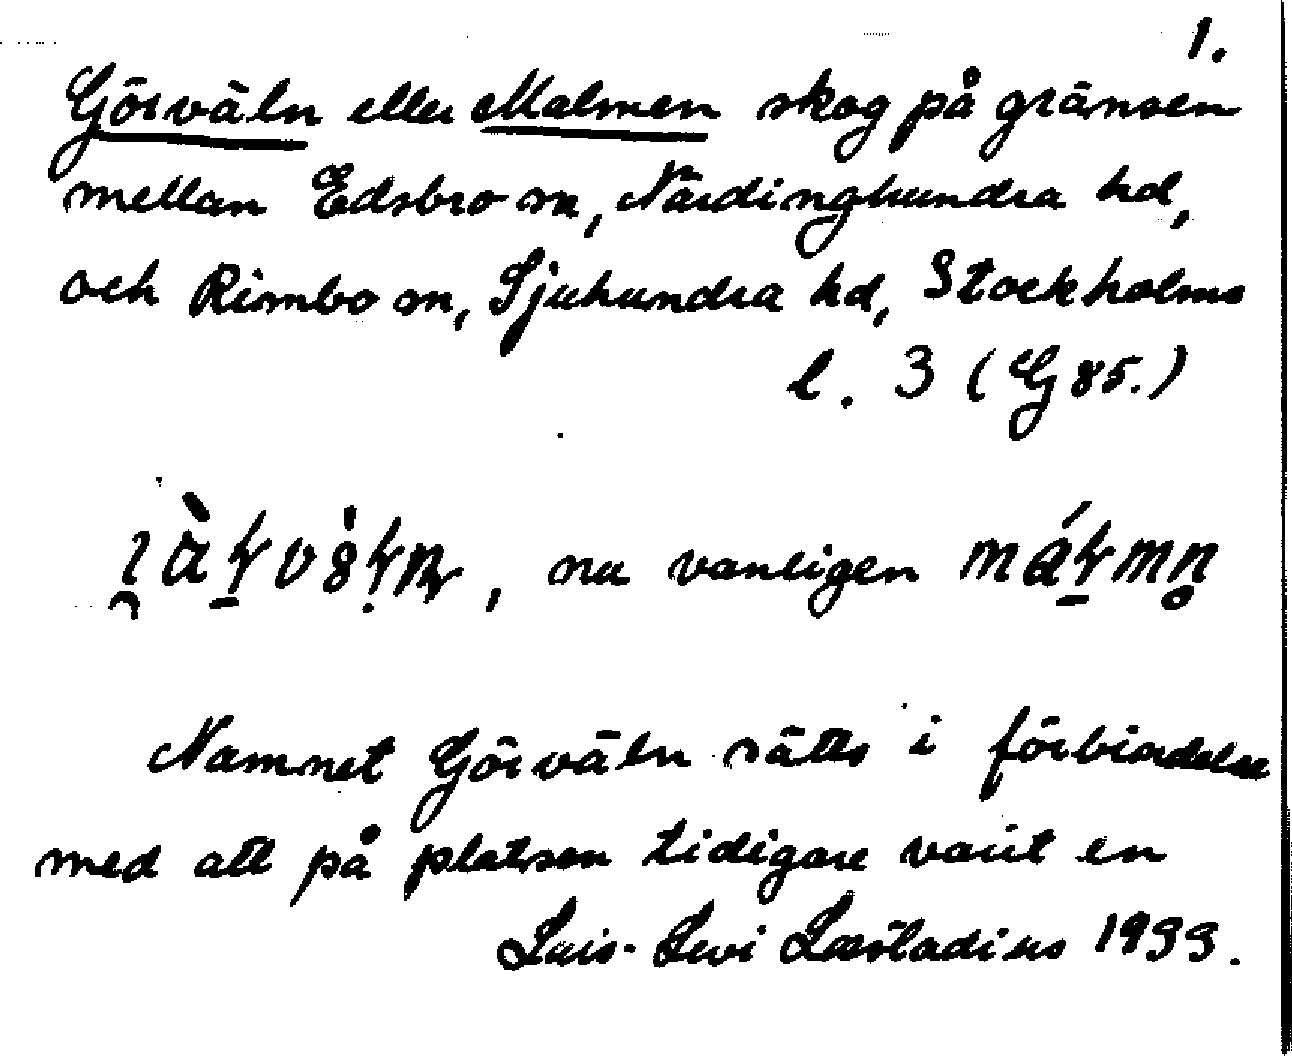 1.
Görväln eller Malmen skog på gränsen
mellan Edsbro sn, Närdinghundra hd,
och Rimbo sn, Sjuhundra hd, Stockholms
l. 3 (G 85.)
, nu vanligen
Namnet Görväln sätts i förbindelse
med att på platsen tidigare varit en
Lars-Levi Læstadius 1933.